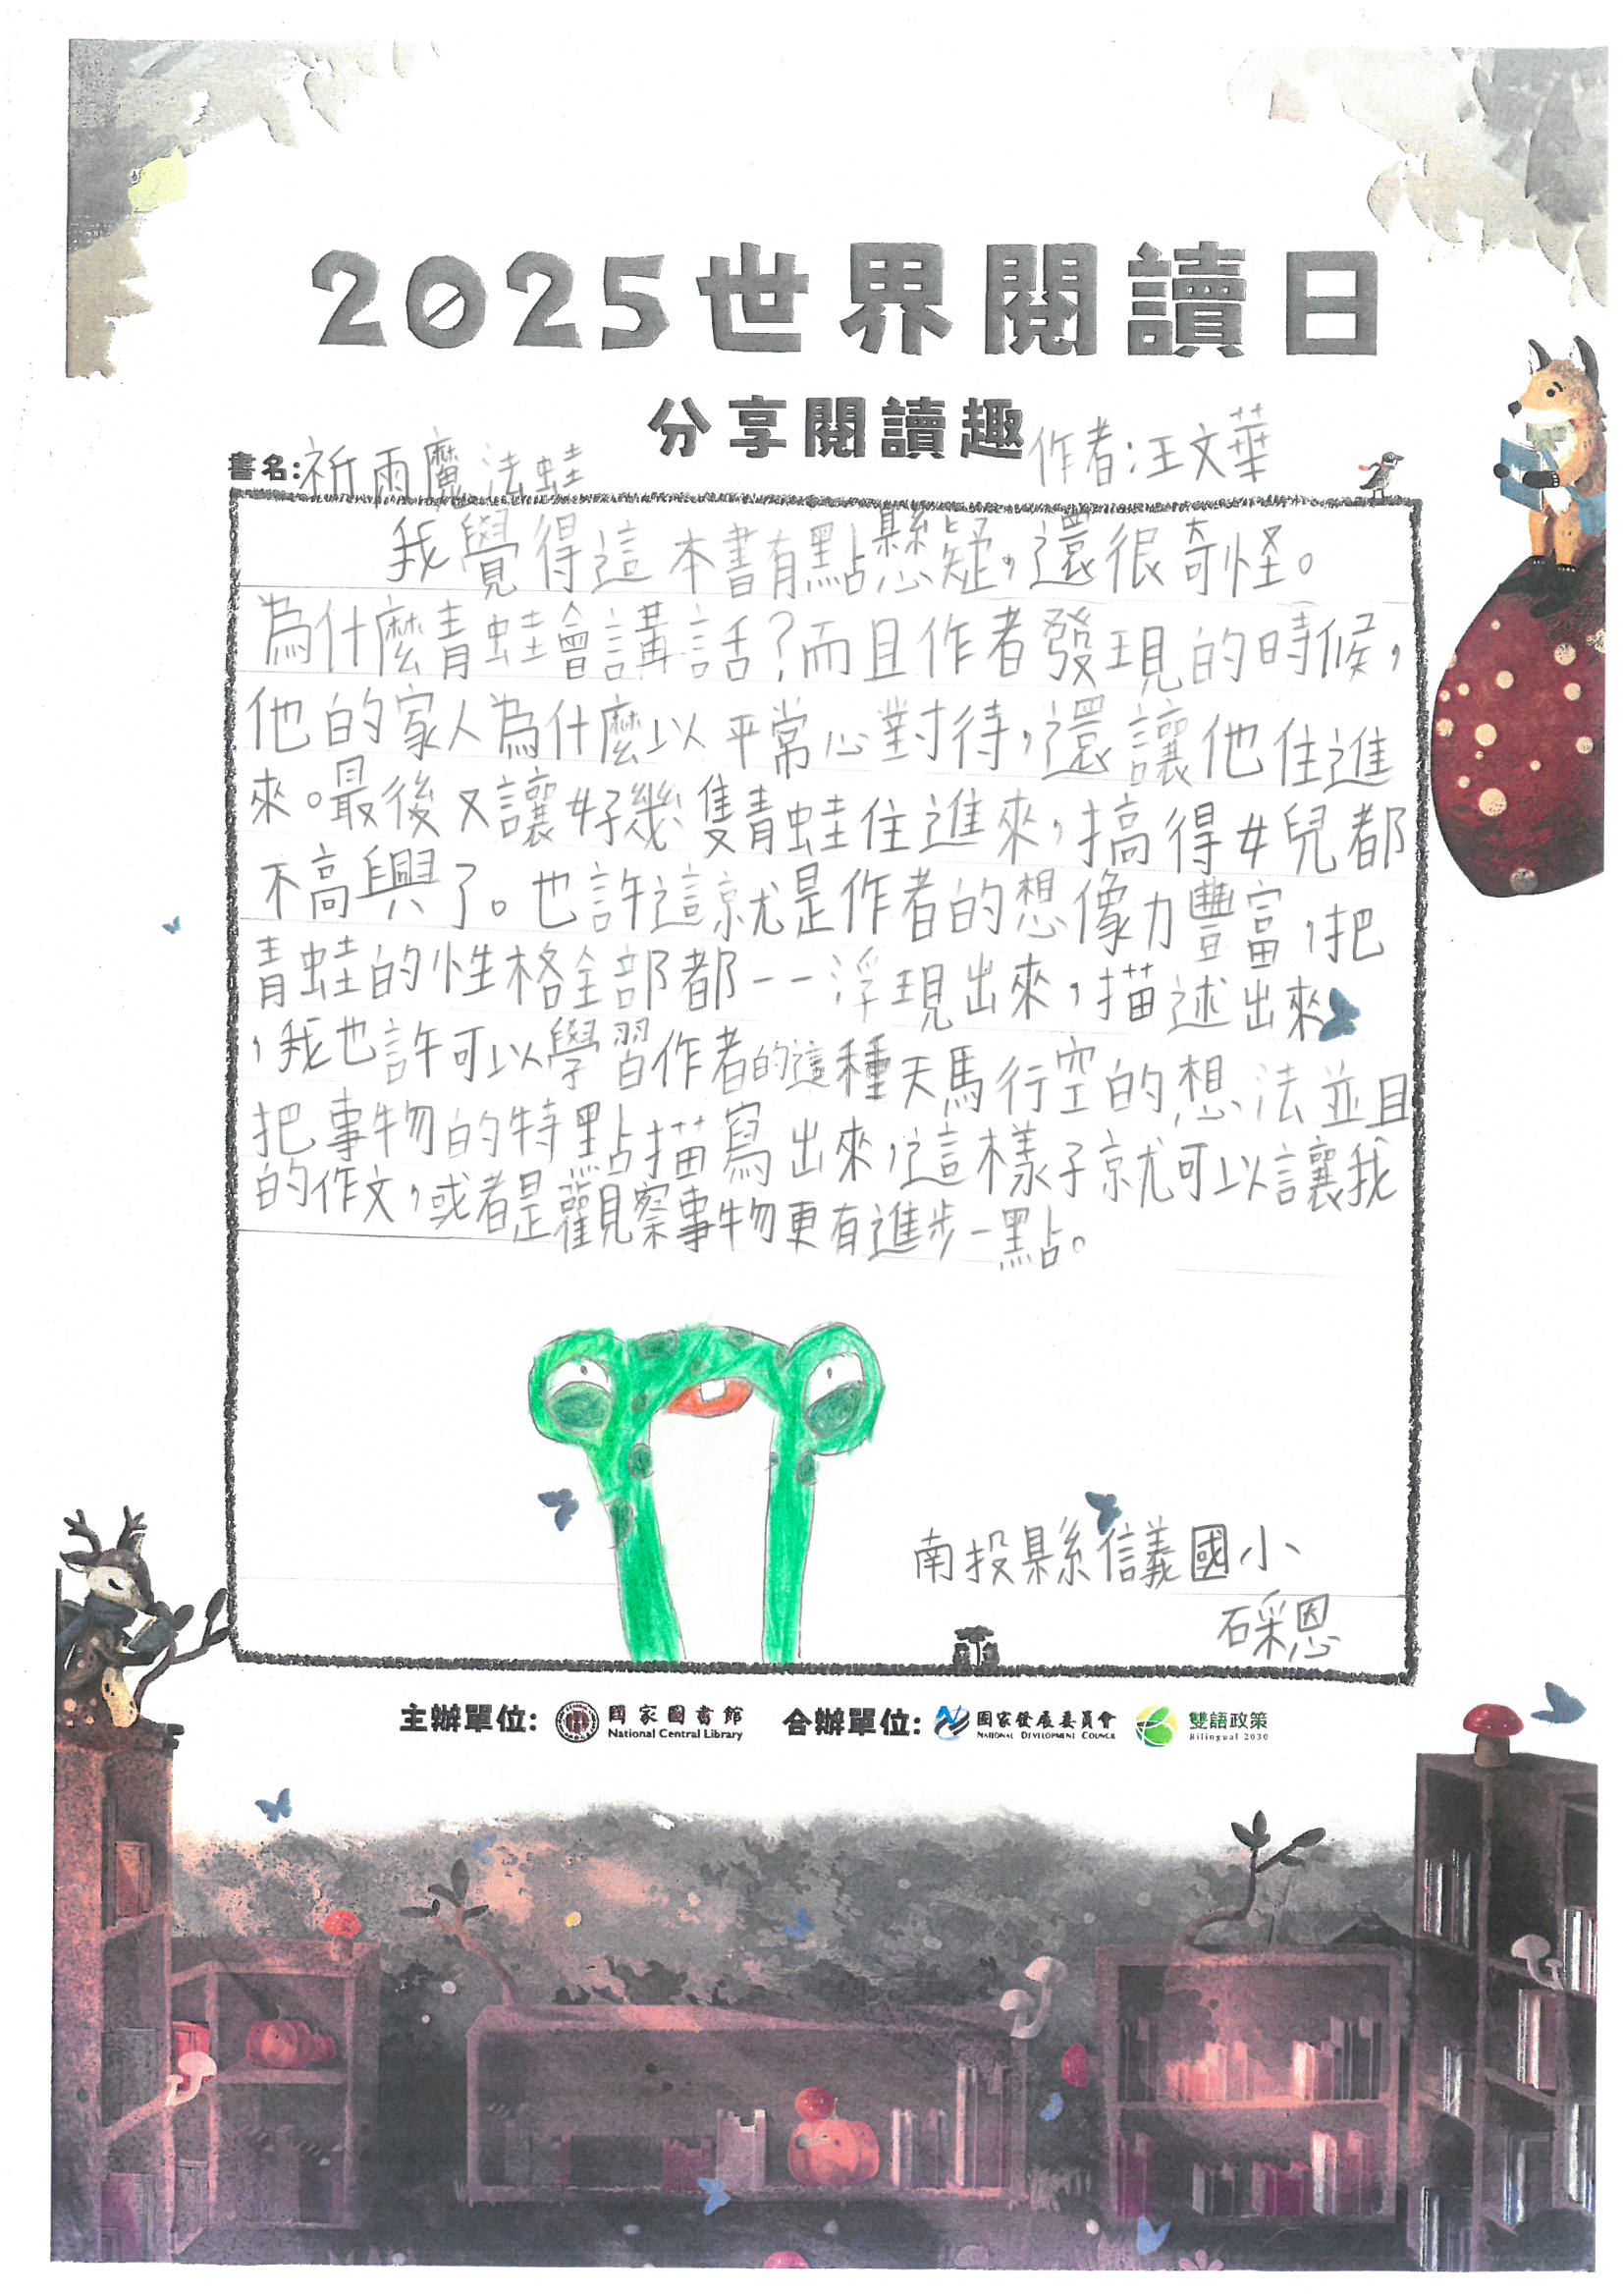 2025世界閱讀日
分享閱讀趣
書名:祈雨魔法蛙 作者:汪文華
我覺得這本書有點懸疑,還很奇怪。
為什麼青蛙會講話?而且作者發現的時候,
他的家人為什麼以平常心對待,還讓他住進
來。最後又讓好幾隻青蛙住進來,搞得女兒都
不高興了。也許這就是作者的想像力豐富,把
青蛙的性格全部都一一浮現出來,描述出來
,我也許可以學習作者的這種天馬行空的想法並且
把事物的特點描寫出來,這樣子就可以讓我
的作文,或者是觀察事物更有進步一點。
南投縣信義國小
石采恩
主辦單位: 國家圖書館 National Central Library 合辦單位: 國家發展委員會 National Development Council 雙語政策 Bilingual 2030